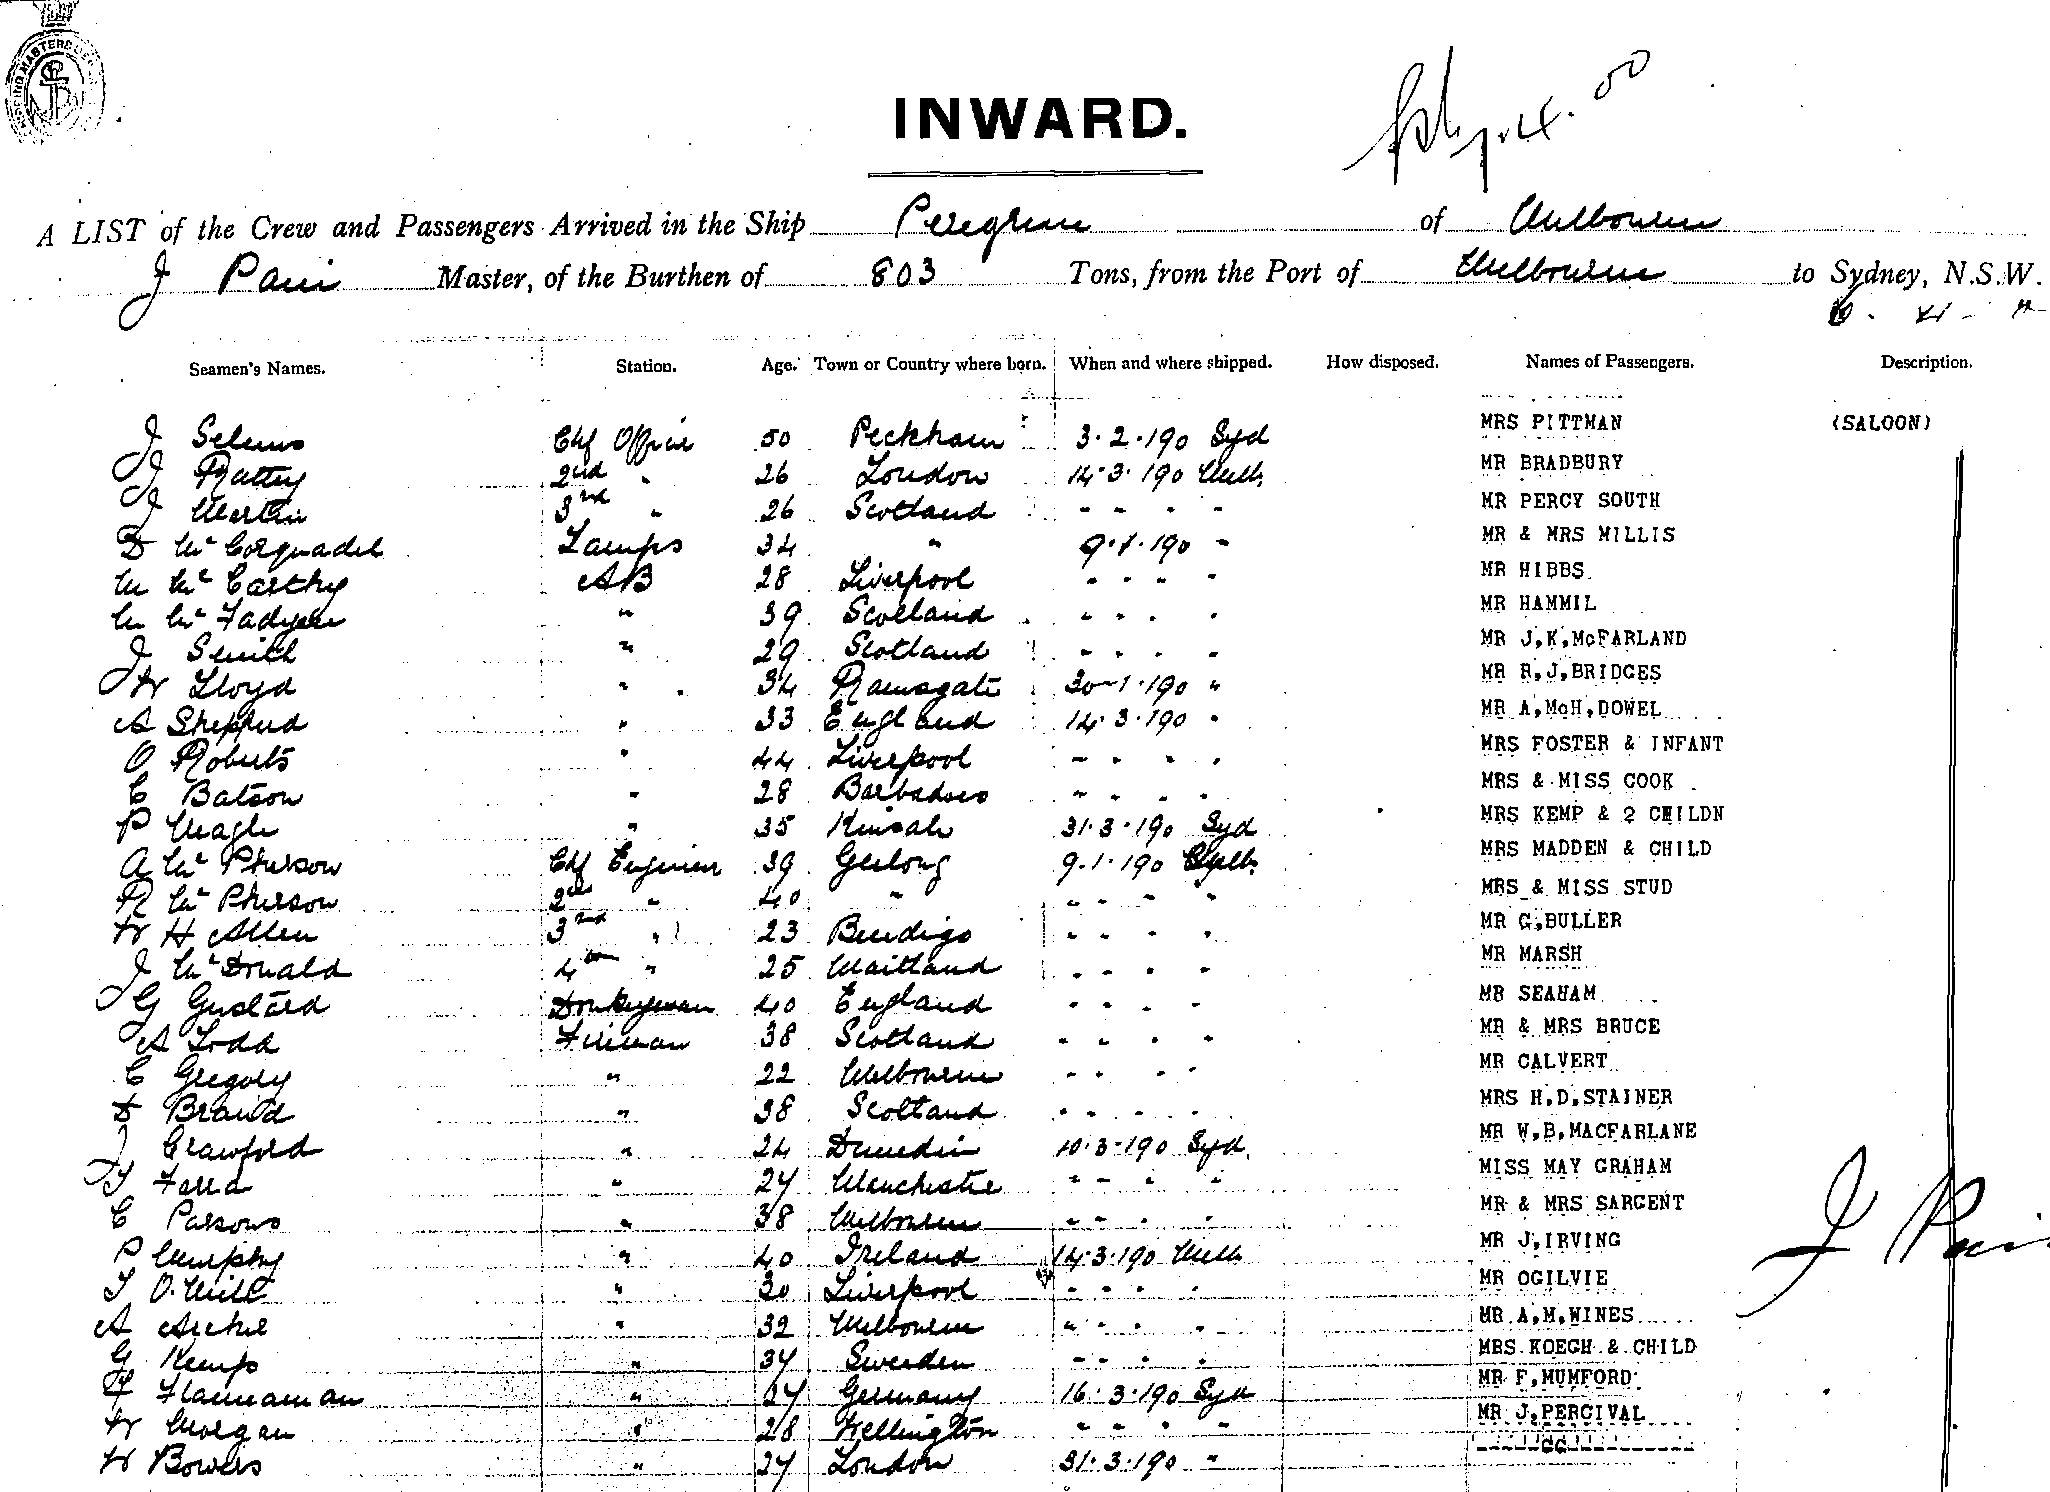 INWARD.
A LIST of the Crew and Passengers Arrived in the Ship Peregrine of Melbourne
J Pain Master, of the Burthen of 803 Tons, from the Port of Melbourne to Sydney, N.S.W.
Seamen's Names. Station. Age. Town or Country where born. When and where shipped. How disposed. Names of Passengers. Description.
J Chf Officer 50 Peckham 3.2.190 Syd MRS PITTMAN (SALOON)
J Rattey 2nd " 26 London 14.3.190 Melb. MR BRADBURY
J Martin 3rd " 26 Scotland " " " " MR PERCY SOUTH
D Mc Corquadel Lamps 34 " 9.1.190 " MR & MRS MILLIS
M Mc Carthy AB 28 Liverpool " " " " MR HIBBS
M Mc Fadyen " 39 Scotland " " " " MR HAMMIL
J Smith " 29 Scotland " " " " MR J.K.McFARLAND
W Lloyd " 34 Ramsgate 30-1.190 " MR R.J.BRIDGES
A Shepperd " 33 England 14.3.190 " MR A.McH.DOWEL
O Roberts " 44 Liverpool " " " " MRS FOSTER & INFANT
C Batson " 28 Barbadoes " " " " MRS & MISS COOK
P Meagle " 35 Kinsale 31.3.190 Syd MRS KEMP & 2 CHILDN
A Mc Pherson Chf Engineer 39 Geelong 9.1.190 Melb. MRS MADDEN & CHILD
R Mc Pherson 2nd " 40 " " " " " MRS & MISS STUD
W H Allen 3rd " 23 Bendigo " " " " MR G.BULLER
J McDonald 4th " 25 Maitland " " " " MR MARSH
G Gustard Donkeyman 40 England " " " " MR SEAHAM
A Todd Fireman 38 Scotland " " " " MR & MRS BRUCE
C Gregory " 22 Melbourne " " " " MR CALVERT
D Brand " 38 Scotland " " " " MRS H.D.STAINER
J Crawford " 24 Dunedin 10.3.190 Syd. MR W.B.MACFARLANE
T Farra " 27 Manchester " " " " MISS MAY GRAHAM
C Parsons " 38 Melbourne " " " " MR & MRS SARGENT
P Murphy " 40 Ireland 14.3.190 Melb MR J.IRVING
T O.Neill " 30 Liverpool " " " " MR OGILVIE
A Archer " 32 Melbourne " " " " MR A.M.WINES
G Kemp " 37 Sweden " " " " MRS KOEGH & CHILD
F Hannaman " 27 Germany 16.3.190 Syd MR F.MUMFORD
W Morgan " 28 Wellington " " " " MR J.PERCIVAL
W Bowers " 27 London 31.3.190 "
J Pain